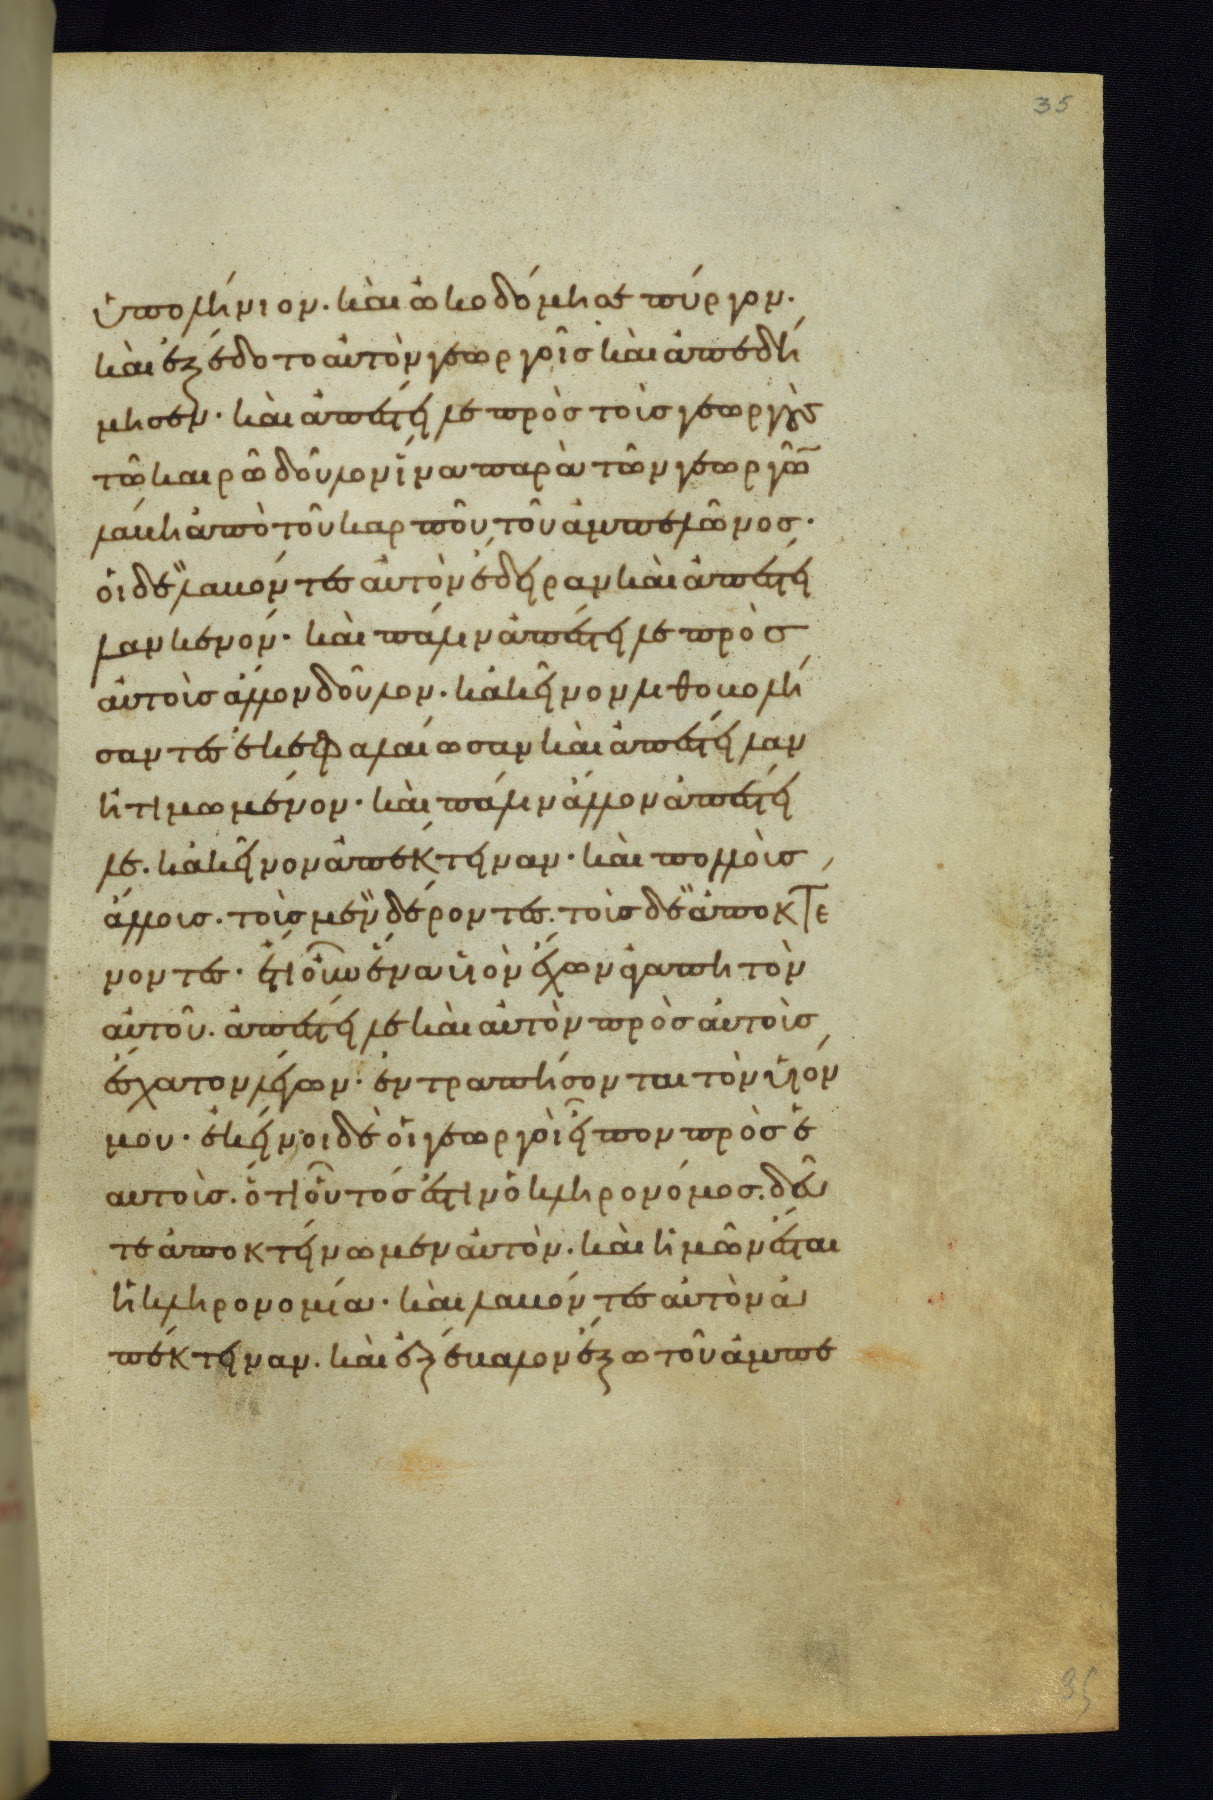 35
ὑπολήνιον. καὶ ὠκοδόμησε πύργον.
καὶ ἐξέδοτο αὐτὸν γεωργοῖς καὶ ἀπεδή
μησεν. καὶ ἀπέστειλε πρὸς τοὺς γεωργοὺς
τῶ καιρῶ δοῦλον ἵνα παρὰ τῶν γεωργῶν
λάβη ἀπὸ τοῦ καρποῦ τοῦ ἀμπελῶνος.
οἱ δὲ λαβόντες αὐτὸν ἔδειραν καὶ ἀπέστει
λαν κενόν. καὶ πάλιν ἀπέστειλε πρὸς
αὐτοὺς ἄλλον δοῦλον. κἀκεῖνον λιθοβολή
σαντες ἐκεφαλαίωσαν καὶ ἀπέστειλαν
ἠτιμωμένον. καὶ πάλιν ἄλλον ἀπέστει
λε. κἀκεῖνον ἀπέκτειναν. καὶ πολλοὺς
ἄλλους. τοὺς μὲν δέροντες. τοὺς δὲ ἀποκτε
νοντες. ἔτι οὖν ἕνα υἱὸν ἔχων ἀγαπητὸν
αὐτοῦ. ἀπέστειλε καὶ αὐτὸν πρὸς αὐτοὺς
ἔσχατον λέγων. ἐντραπήσονται τὸν υἱόν
μου. ἐκεῖνοι δὲ οἱ γεωργοὶ εἶπον πρὸς ἑ
αυτοὺς. ὅτι οὗτός ἐστιν ὁ κληρονόμος. δεῦ
τε ἀποκτείνωμεν αὐτὸν. καὶ ἡμῶν ἔσται
ἡ κληρονομία. καὶ λαβόντες αὐτὸν ἀ
πέκτειναν. καὶ ἐξέβαλον ἔξω τοῦ ἀμπε
35